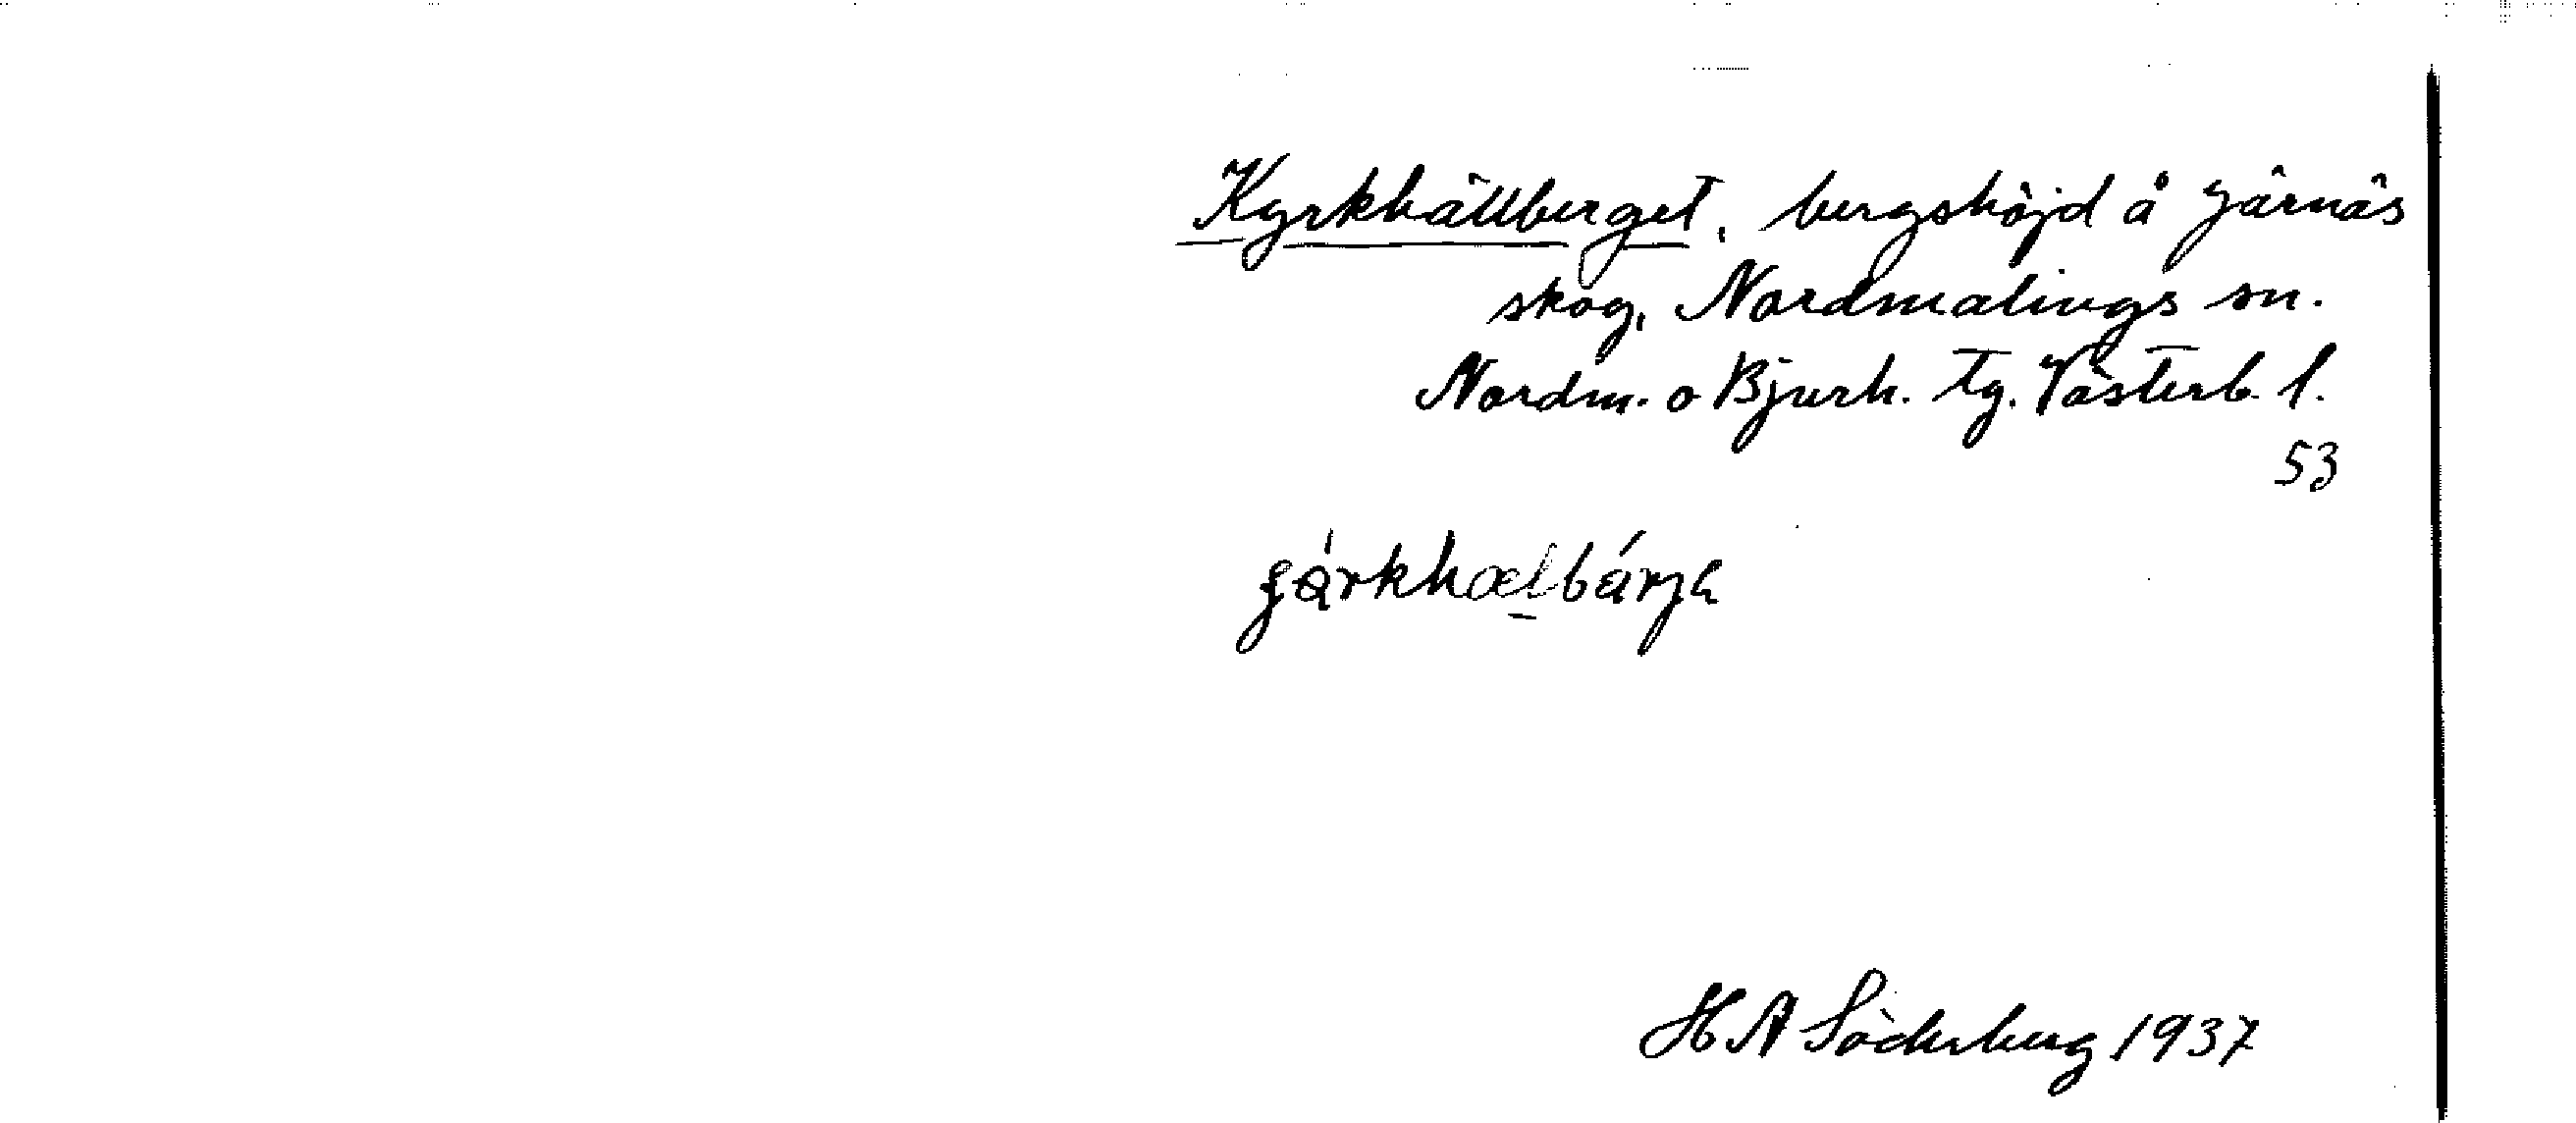 Kyrkhällberget, bergshöjd å Järnäs
skog, Nordmalings sn.
Nordm. o Bjurh. tg. Västerb. l.
53
H A Söderberg 1937